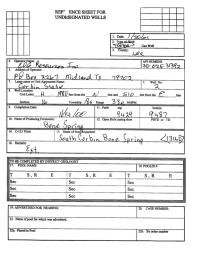 REF ENCE SHEET FOR
UNDESIGNATED WELLS
1. Date:
2. Type of Well:
Gas Well
3. County:
Lea
4. Operator
EOG Resources Inc
API NUMBER
30 025
5. Address of Operator
PO Box 2267 Midland Tx 79702
6. Lease name or Unit Agreement Name
Corbin State
7. Well No.
2
8. Well Location
Unit Letter
feet from the N line and 510 feet from the E line
Section Township 18s Range 33e NMPM
9. Completion Date
11. Perfs top bottom
9429 9487
10. Name of Producing Formation(s)
Bone Spring
12. Open Hole casing shoe PBTD or TD
14. C-123 Filed
15. Name of Pool Requested
South Corbin Bone Spring
16. Remarks
Ext.
TO BE COMPLETED BY DISTRICT GEOLOGIST
17. POOL NAME
18. POOL ID #
T S, R E T S, R E T S, R E
Sec Sec Sec
Sec Sec Sec
Sec Sec Sec
19. ADVERTISED FOR HEARING
20. CASE NUMBER:
21. Name of pool for which was advertised.
22a. Placed in Pool
22b. By order number